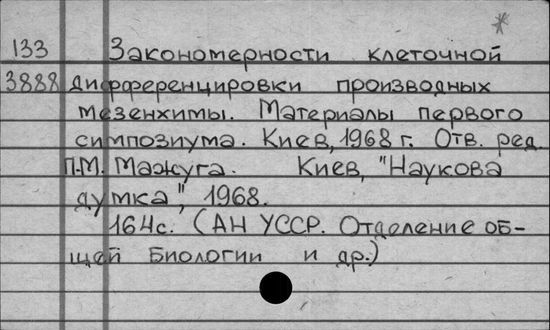 133 Закономерности клеточной
3888 дифференцировки производных
мезенхимы. Материалы первого
симпозиума. Киев, 1968 г. Отв. ред.
П.М. Мажуга. Киев, "Наукова
думка", 1968.
164с. (АН УССР. Отделение об-
щей биологии и др.)